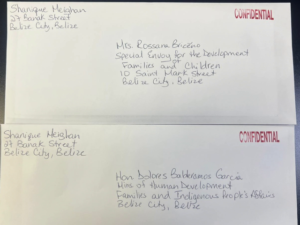 Shanique Meighan
27 Banak Street
Belize City, Belize
CONFIDENTIAL
Mrs. Rossana Briceño
Special Envoy for the Development
of
Families and Children
10 Saint Mark Street
Belize City, Belize
Shanique Meighan
27 Banak Street
Belize City, Belize
CONFIDENTIAL
Hon Dolores Balderamos Garcia
Mins of Human Development
Families and Indigenous People's Affairs
Belize City, Belize